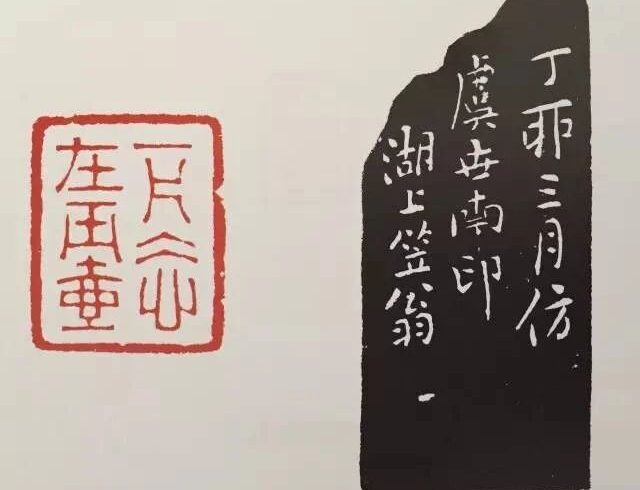 一片冰心
在玉壺
丁丣三月仿
虞世南印
湖上笠翁